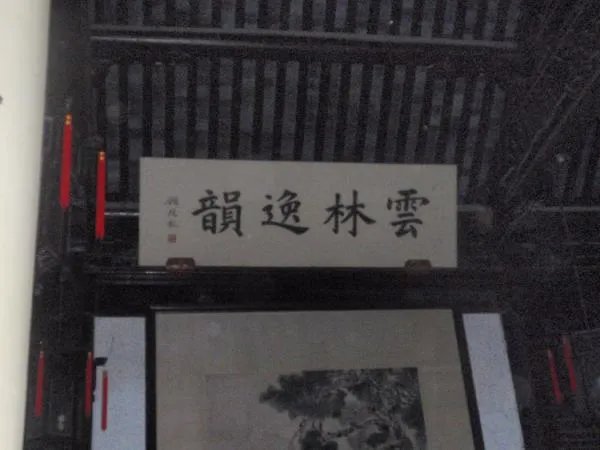 雲林逸韻